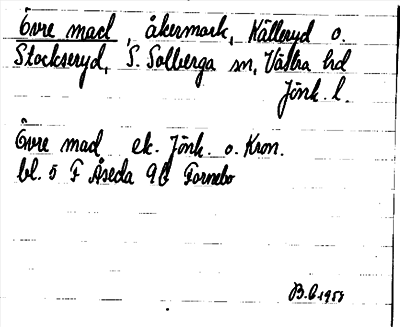 Övre mad, åkermark, Källeryd o.
Stockseryd, S. Solberga sn, Västra hd
Jönk. l.
Övre mad ek. Jönk. o. Kron.
bl. 5 F Åseda 9b Fornebo
B.C. 1958